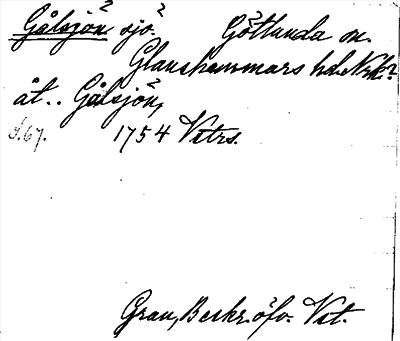 Gålsjön² sjö.² Götlunda sn.
Glanshammars hd. Nrk.?
åt.. Gålsjön,²
S.67. 1754 Vstrs.
Grau, Beskr. öfv. Vst.